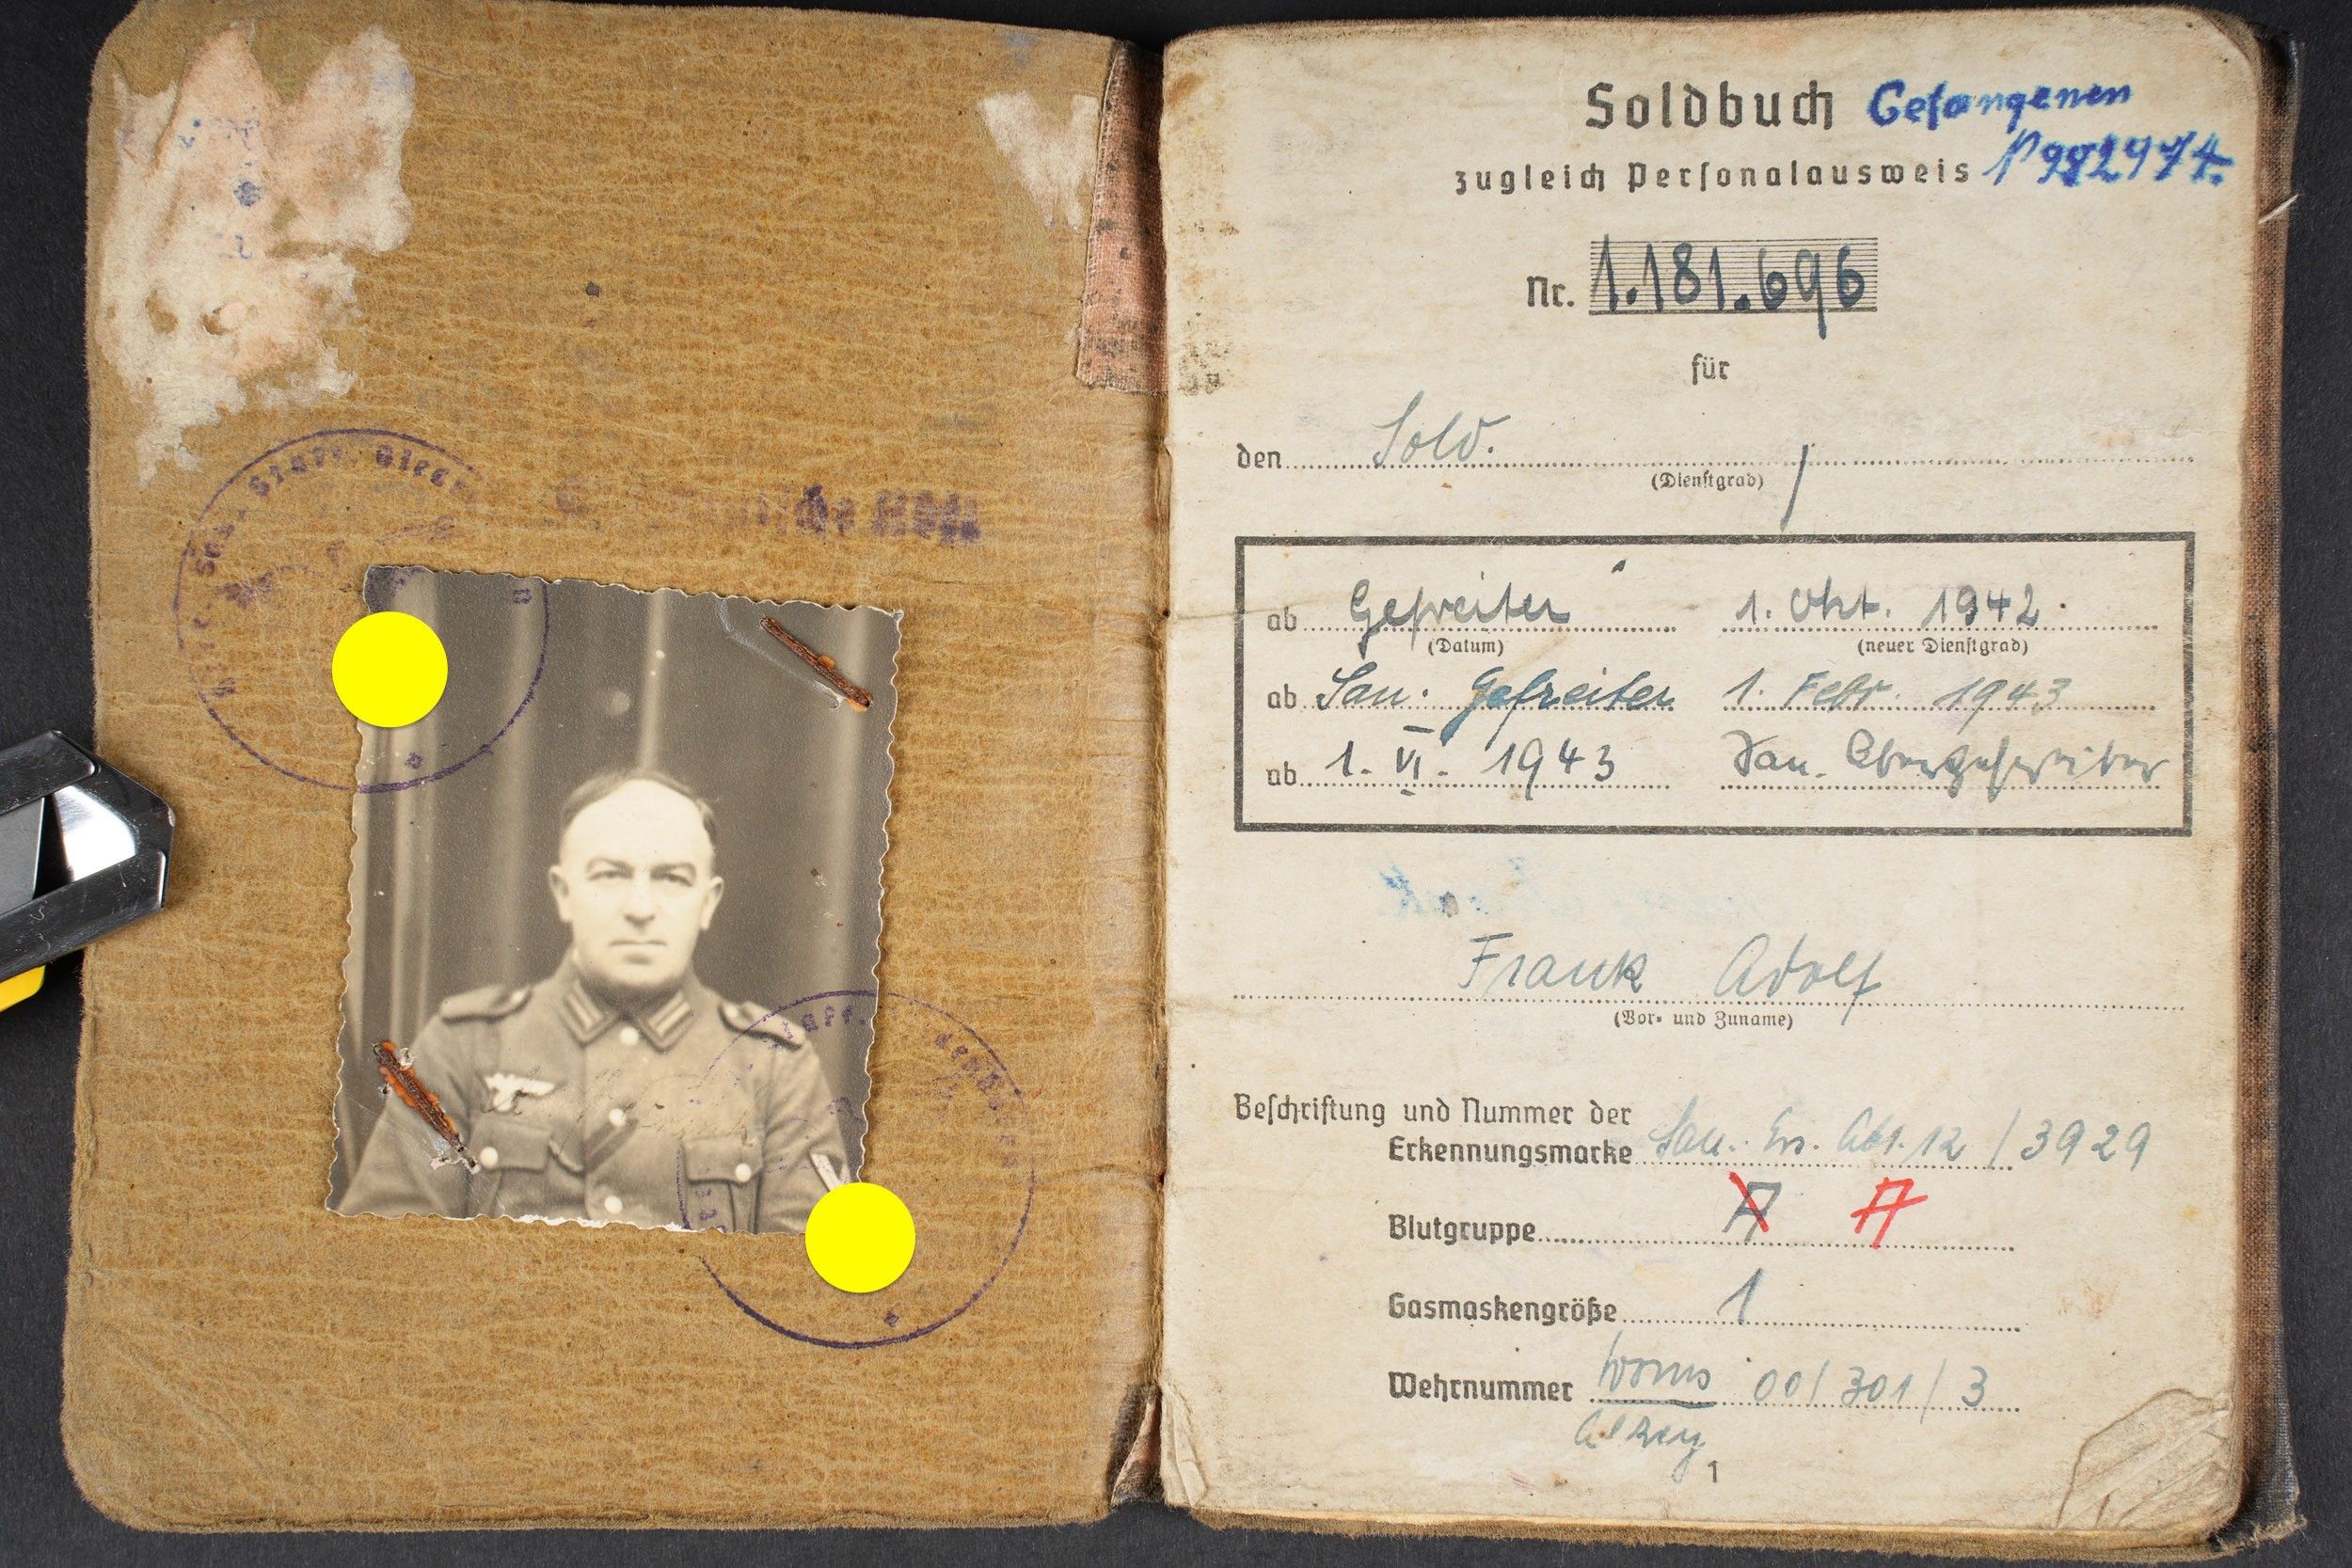 Soldbuch Gefangenen
zugleich Personalausweis
Nr. 1.181.696
für
den Sold.
(Dienstgrad)
ab Gefreiter 1. Okt. 1942.
(Datum) (neuer Dienstgrad)
ab San. Gefreiter 1. Febr. 1943
ab 1. VI. 1943 San. Obergefreiter
Frank Adolf
(Vor- und Zuname)
Beschriftung und Nummer der
Erkennungsmarke San. Ers. Abt. 12 / 3929
Blutgruppe A A
Gasmaskengröße 1
Wehrnummer Worms 00/301/3
Alzey
1